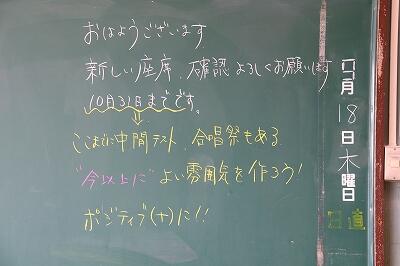 おはようございます
新しい座席、確認よろしくお願いします
10月31日までです。
ここまでに中間テスト、合唱祭もある
"今以上に"よい雰囲気を作ろう!
ポジティブ(+)に!!
月18日木曜日
日直